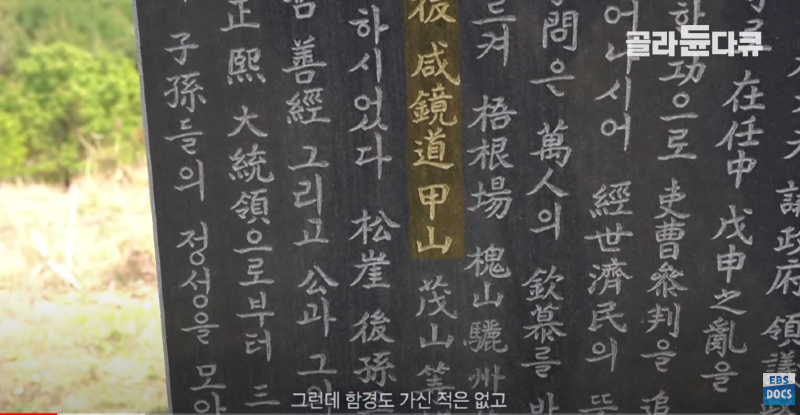 골라듄다큐
議政府領議
在任中 戊申之亂을
功으로 吏曹參判을 追
어나시어 經世濟民의
問은 萬人의 欽慕를
르켜 梧根場 槐山驪州
後 咸鏡道甲山 茂山
하시었다 松崖 後孫
善經 그리고 公과 그
正熙 大統領으로부터 三
子孫들의 정성을 모아
그런데 함경도 가신 적은 없고
EBS
DOCS